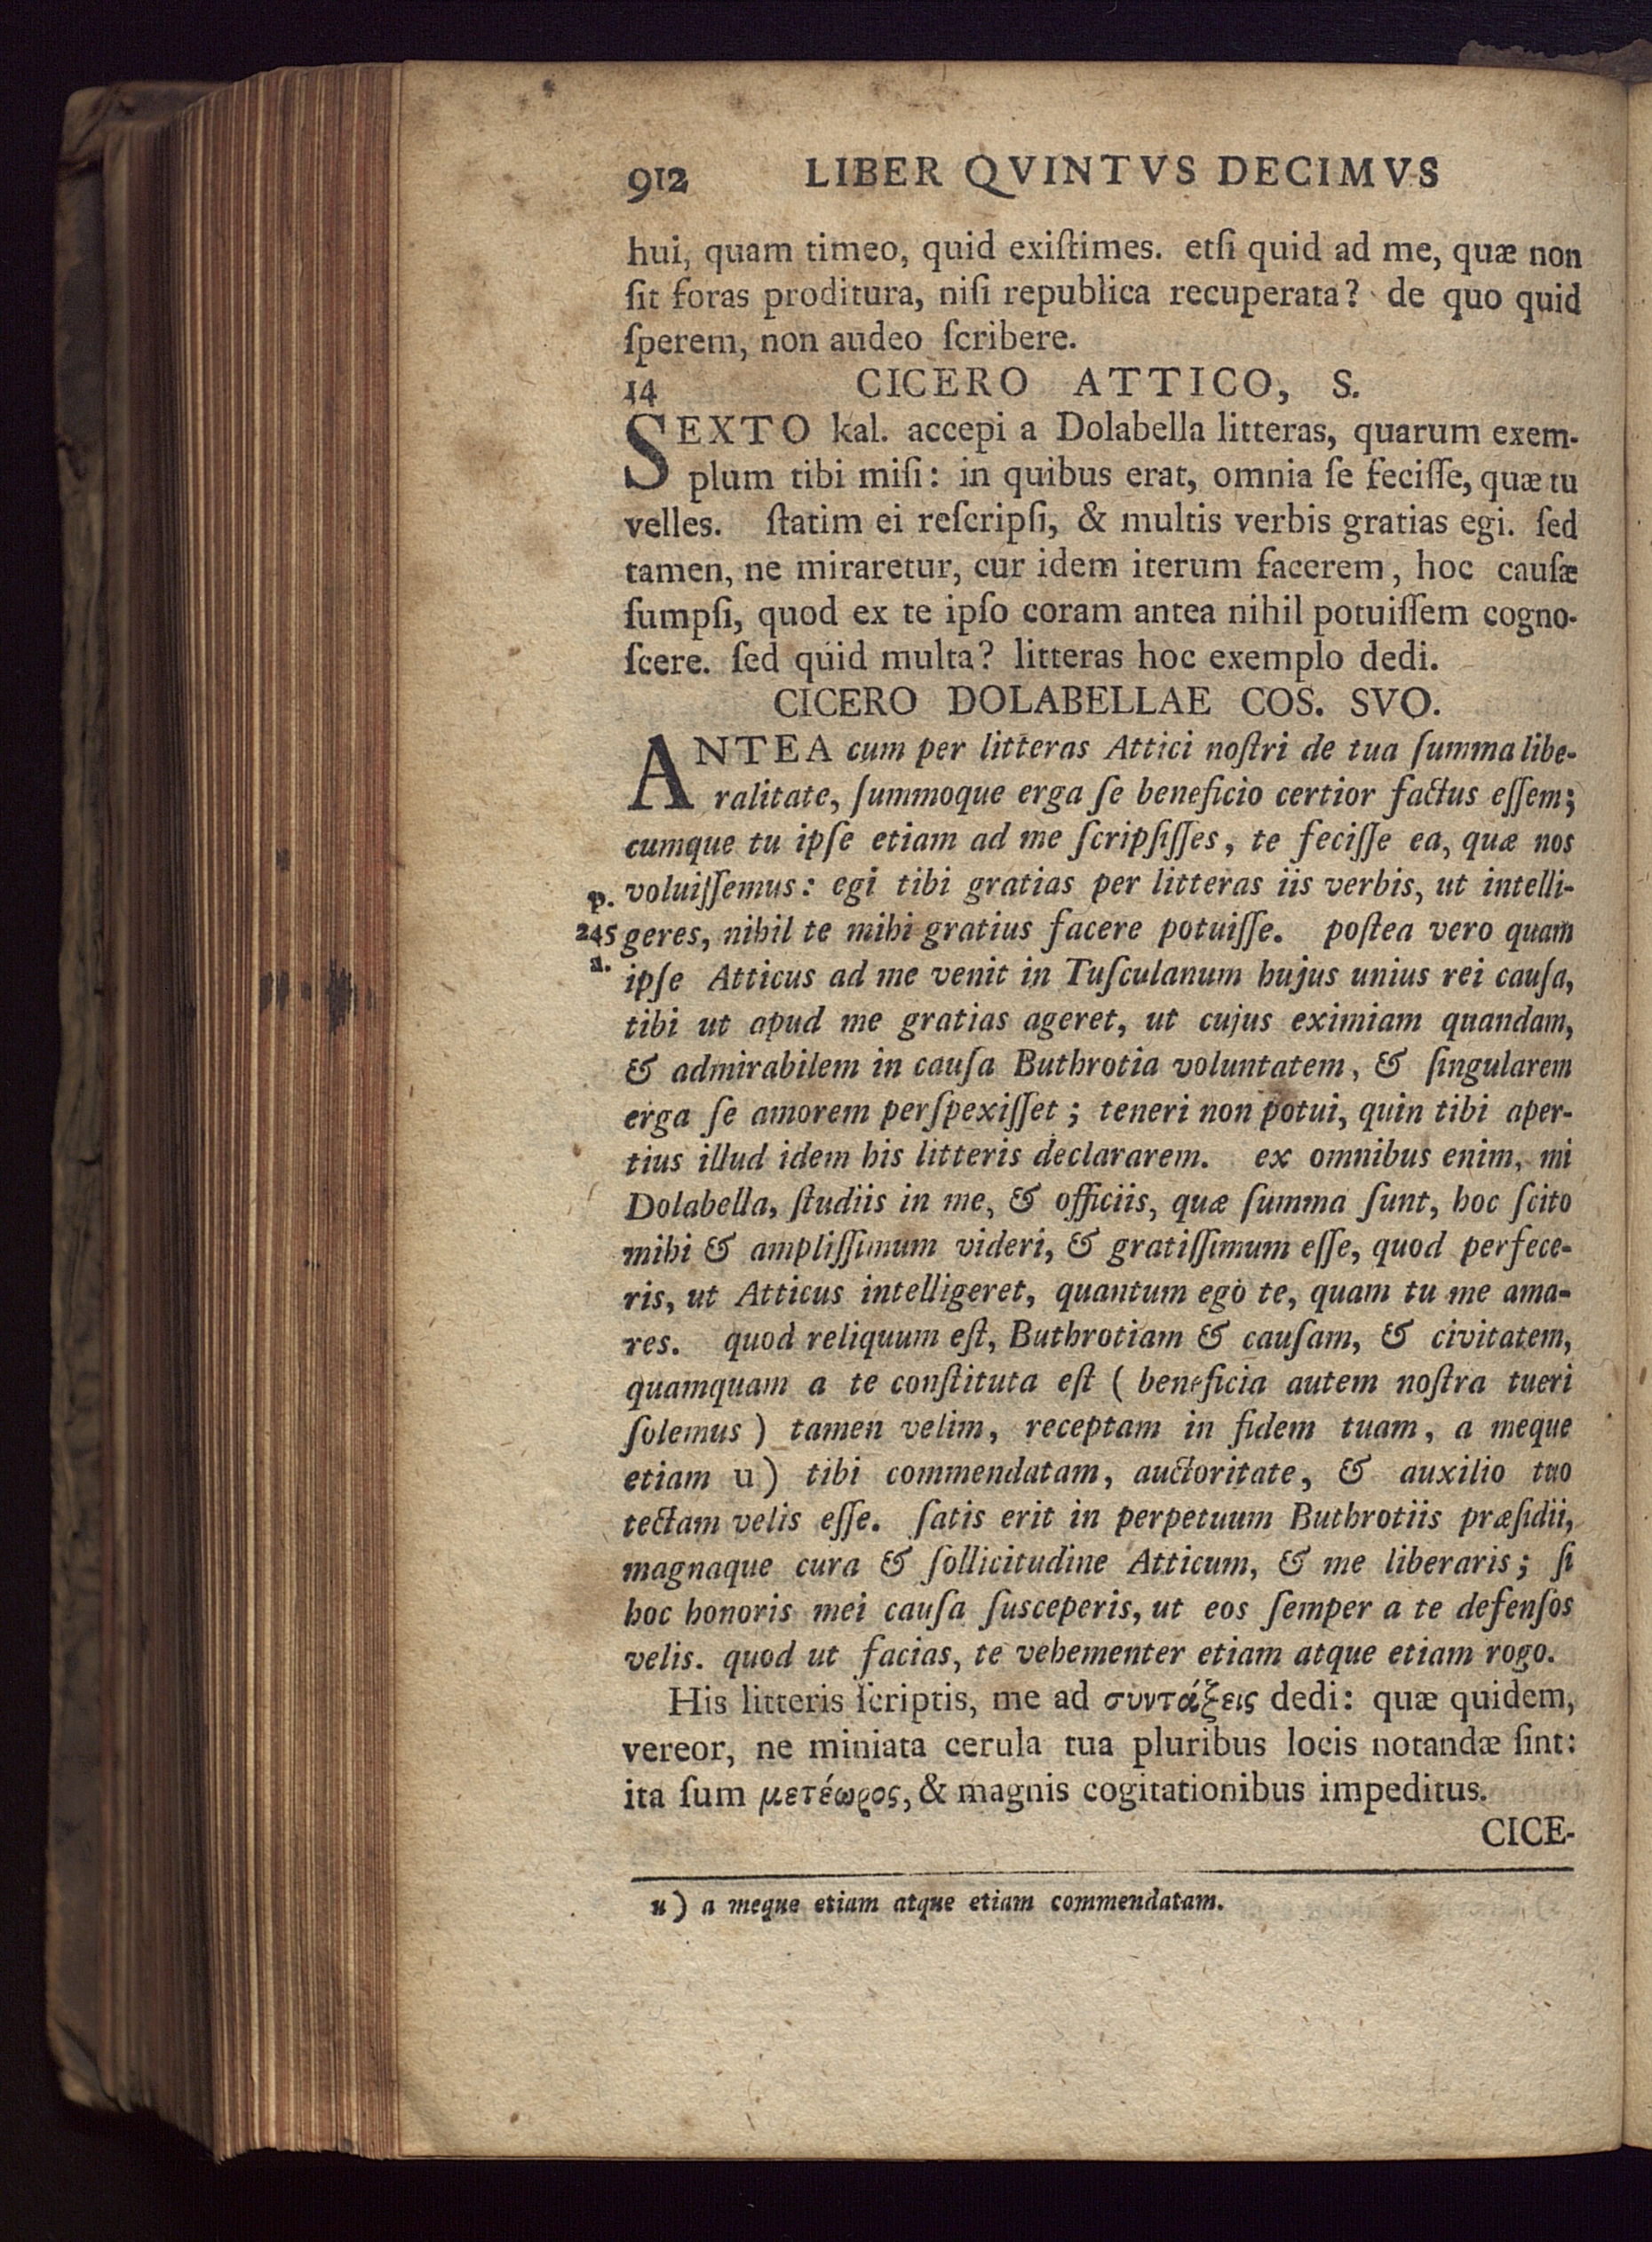 912 LIBER QVINTVS DECIMVS
hui, quam timeo, quid exiſtimes. etſi quid ad me, quæ non
ſit foras proditura, niſi republica recuperata? de quo quid
ſperem, non audeo ſcribere.
14 CICERO ATTICO, S.
SEXTO kal. accepi a Dolabella litteras, quarum exem-
plum tibi miſi: in quibus erat, omnia ſe feciſſe, quæ tu
velles. ſtatim ei reſcripſi, & multis verbis gratias egi. ſed
tamen, ne miraretur, cur idem iterum facerem, hoc cauſæ
ſumpſi, quod ex te ipſo coram antea nihil potuiſſem cogno-
ſcere. ſed quid multa? litteras hoc exemplo dedi.
CICERO DOLABELLAE COS. SVO.
ANTEA cum per litteras Attici noſtri de tua ſumma libe-
ralitate, ſummoque erga ſe beneficio certior factus eſſem;
cumque tu ipſe etiam ad me ſcripſiſſes, te feciſſe ea, quæ nos
p. voluiſſemus: egi tibi gratias per litteras iis verbis, ut intelli-
245 geres, nihil te mihi gratius facere potuiſſe. poſtea vero quam
a. ipſe Atticus ad me venit in Tuſculanum hujus unius rei cauſa,
tibi ut apud me gratias ageret, ut cujus eximiam quandam,
& admirabilem in cauſa Buthrotia voluntatem, & ſingularem
erga ſe amorem perſpexiſſet; teneri non potui, quin tibi aper-
tius illud idem his litteris declararem. ex omnibus enim, mi
Dolabella, ſtudiis in me, & officiis, quæ ſumma ſunt, hoc ſcito
mihi & ampliſſimum videri, & gratiſſimum eſſe, quod perfece-
ris, ut Atticus intelligeret, quantum ego te, quam tu me ama-
res. quod reliquum eſt, Buthrotiam & cauſam, & civitatem,
quamquam a te conſtituta eſt ( beneficia autem noſtra tueri
ſolemus ) tamen velim, receptam in fidem tuam, a meque
etiam u) tibi commendatam, auctoritate, & auxilio tuo
tectam velis eſſe. ſatis erit in perpetuum Buthrotiis præſidii,
magnaque cura & ſollicitudine Atticum, & me liberaris; ſi
hoc honoris mei cauſa ſusceperis, ut eos ſemper a te defenſos
velis. quod ut facias, te vehementer etiam atque etiam rogo.
His litteris ſcriptis, me ad συντάξεις dedi: quæ quidem,
vereor, ne miniata cerula tua pluribus locis notandæ ſint:
ita ſum μετέωρος, & magnis cogitationibus impeditus.
CICE-
u) a meque etiam atque etiam commendatam.